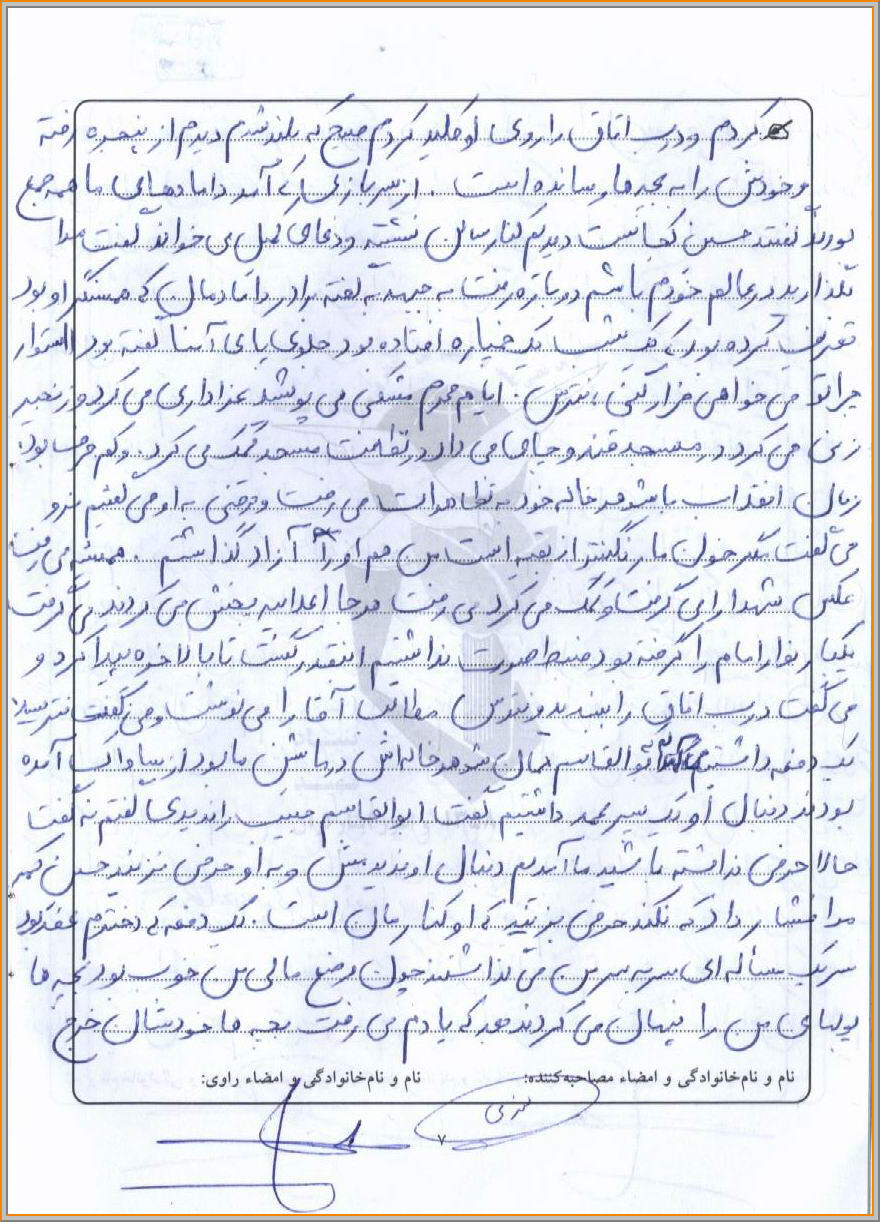 کردم و درب اتاق را روی او کلید کردم صبح که بلند شدم دیدم از پنجره رفته
و خودش را به بچه‌ها رسانده است. از سربازی که آمد دامادهای ما همه جمع
بودند گفتند حسین کجاست دیدیم کنار سالن نشسته و دعای کمیل می خواند گفت مرا
بگذارید در عالم خودم باشم درباره رفت به جبهه به گفته برادر دامادمان که همسنگر او بود
تعریف کرده بود که یک شب یک خمپاره افتاده بود جلوی پای آنها گفته بود استوار
چرا تو می خواهی فرار کنی، نترس. ایام محرم مشکی می پوشید عزاداری می کرد و زنجیر
زنی می کرد در مسجد قند و چای می داد در نظافت مسجد کمک می کرد. و کم حرف بود.
زمان انقلاب با شوهر خاله خود به تظاهرات می رفت وقتی به او می گفتیم نرو
می گفت مگر خون ما رنگینتر از بقیه است من هم او را آزاد گذاشتم. همیشه می رفت
عکس شهدا را می گرفت و کمک می کرد می رفت هر جا اعلامیه پخش می کردند می گرفت
یکبار نوار امام را گرفته بود ضبط صورت نداشتیم اینقدر گشت تا بالاخره پیدا کرد و
می گفت درب اتاق را ببندید و بترس مطالب آقا را می نوشت و می گفت نترسید
یک دفعه داشتیم ابوالقاسم شوهر خاله‌اش در ماشین ما بود از ساواک آمده
بودند دنبال او یک پسر محمد داشتیم گفت ابوالقاسم حبیب را ندیدی گفتم نه گفت
حالا حرفی نداشته باشید ما آمدیم دنبال او ندیدیمش و به او حرفی نزنید حسین کمر
مرا فشار داد که نکند حرفی بزنید که او کنارمان است. یک دفعه که دخترم عقد بود
سر یک مسأله‌ای سر به سر من می گذاشتند چون وضع مالی من خوب بود بچه ها
پولهای من را پنهان می کردند بعد که یادم می رفت بچه ها خودشان خرج
نام و نام‌خانوادگی و امضاء مصاحبه‌کننده: نام و نام‌خانوادگی و امضاء راوی:
۷